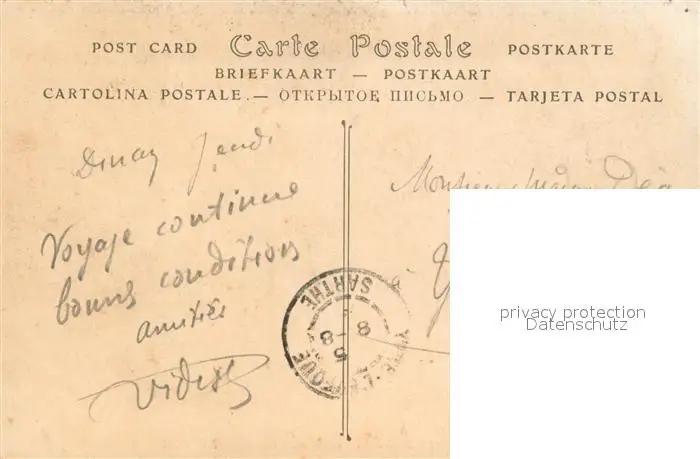 POST CARD Carte Postale POSTKARTE
BRIEFKAART — POSTKAART
CARTOLINA POSTALE. — ОТКРЫТОЕ ПИСЬМО — TARJETA POSTAL
Dinan Jeudi
Voyage continue
bonnes conditions
amitiés
Monsieur
à
SARTHE
8 - 8
5
privacy protection
Datenschutz